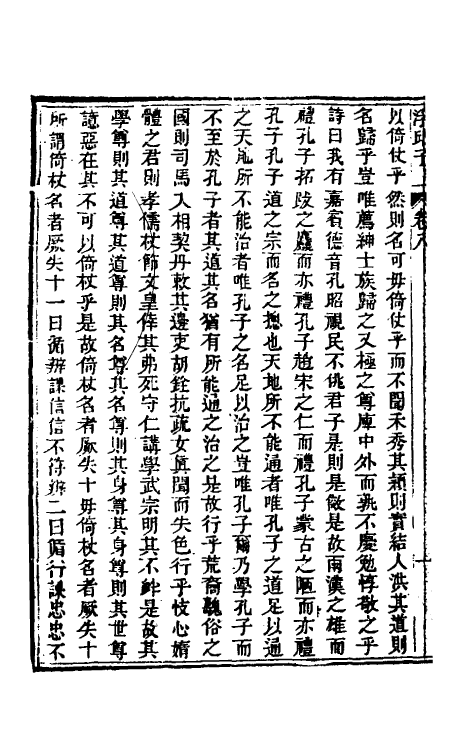 浮邱子 卷八 十
以倚仗乎然則名可毋倚仗乎而不聞未秀其穎則實結人洪其道則
名歸乎豈唯薦紳士族歸之又極之尊庳中外而孰不慶勉惇敬之乎
詩曰我有嘉賓德音孔昭視民不佻君子是則是傚是故兩漢之雄而
禮孔子拓跋之麤而亦禮孔子趙宋之仁而禮孔子蒙古之陋而亦禮
孔子孔子道之宗而名之摠也天地所不能通者唯孔子之道足以通
之天地所不能治者唯孔子之名足以治之豈唯孔子爾乃學孔子而
不至於孔子者其道其名猶有所能通之治之是故行乎荒裔醜俗之
國則司馬入相契丹敕其邊吏胡銓抗疏女眞聞而失色行乎忮心媠
體之君則孝孺杖節文皇倖其弗死守仁講學武宗明其不畔是故其
學尊則其道尊其道尊則其名尊其名尊則其身尊其身尊則其世尊
諠惡在其不可以倚杖乎是故倚杖名者厥失十毋倚杖名者厥失十
所謂倚杖名者厥失十一曰循辨課信信不符辨二曰循行課忠忠不